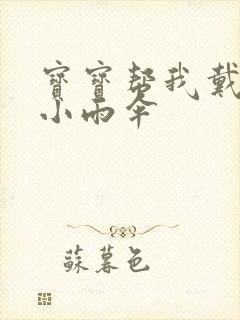 寶寶幫我戴
小雨傘
蘇暮色